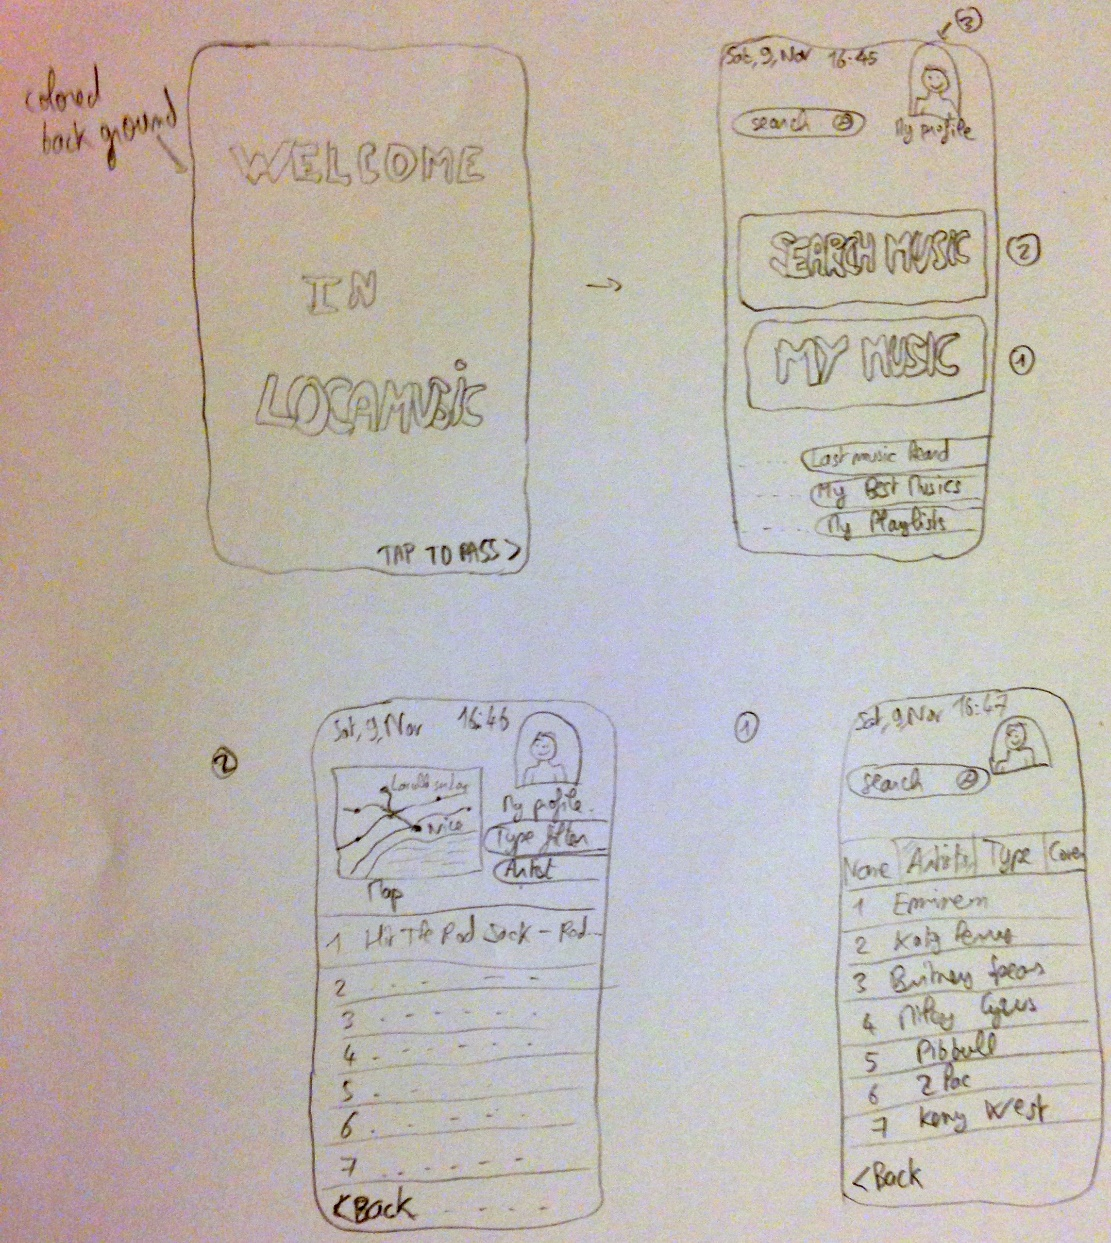 colored
back ground
WELCOME
IN
LOCAMUSiC
TAP TO PASS >
3
Sat, 9, Nov 16:45
search
My profile
SEARCH MUSiC
2
MY MUSIC
1
Last music Heard
My Best Musics
My Playlists
2
Sat, 9, Nov 16:46
Nice
Map
My profile.
Type filter
Artist
1 Hit The Rod Jack - Rad...
2
3
4
5
6
7
< Back
1
Sat, 9, Nov 16:47
search
Name Artists Type Cover
1 Eminem
2 Katy Perry
3 Britney Spears
4 Miley Cyrus
5 Pibbull
6 2 Pac
7 Keny West
< Back